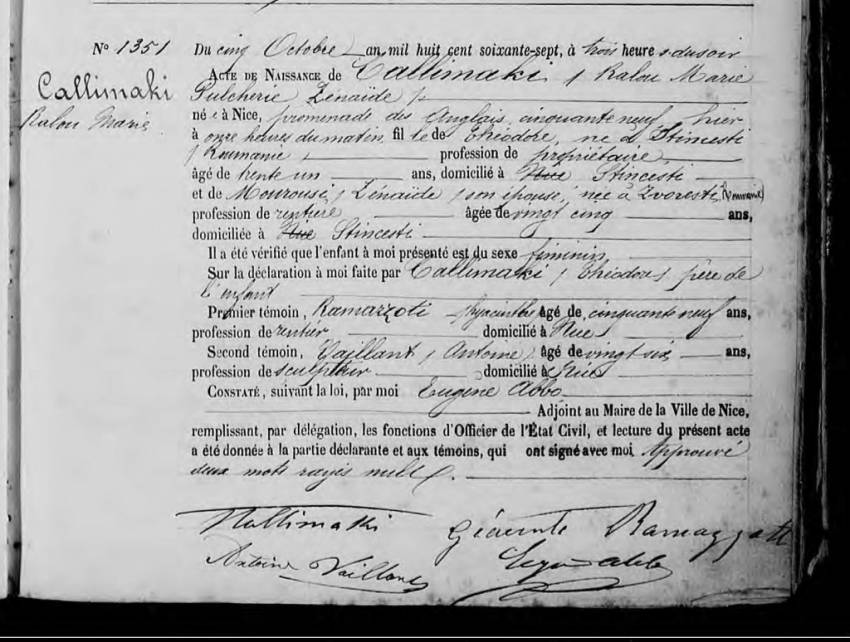 N° 1351
Callimaki
Ralou Marie
Du cinq Octobre an mil huit cent soixante-sept, à trois heures du soir
ACTE DE NAISSANCE de Callimaki, Ralou Marie
Pulcherie Zénaïde
née à Nice, promenade des Anglais cinquante neuf, hier
à onze heures du matin, fille de Théodore, né à Stincesti
(Roumanie) profession de propriétaire
âgé de trente un ans, domicilié à Nice Stincesti
et de Mourousi, Zénaïde, son épouse, née à Zvoresti (Roumanie)
profession de rentière âgée de vingt cinq ans,
domiciliée à Nice Stincesti
Il a été vérifié que l'enfant à moi présenté est du sexe féminin
Sur la déclaration à moi faite par Callimaki, Théodore, père de
l'enfant
Premier témoin, Ramazzoti, hyacinthe, âgé de cinquante neuf ans,
profession de rentier domicilié à Nice
Second témoin, Vaillant, Antoine, âgé de vingt six ans,
profession de sculpteur domicilié à Nice
CONSTATÉ, suivant la loi, par moi Eugène Abbo
Adjoint au Maire de la Ville de Nice,
remplissant, par délégation, les fonctions d'Officier de l'État Civil, et lecture du présent acte
a été donnée à la partie déclarante et aux témoins, qui ont signé avec moi. Approuvé
deux mots rayés nulls.
Kallimaki Giacinte Ramazzotti
Antoine Vaillant